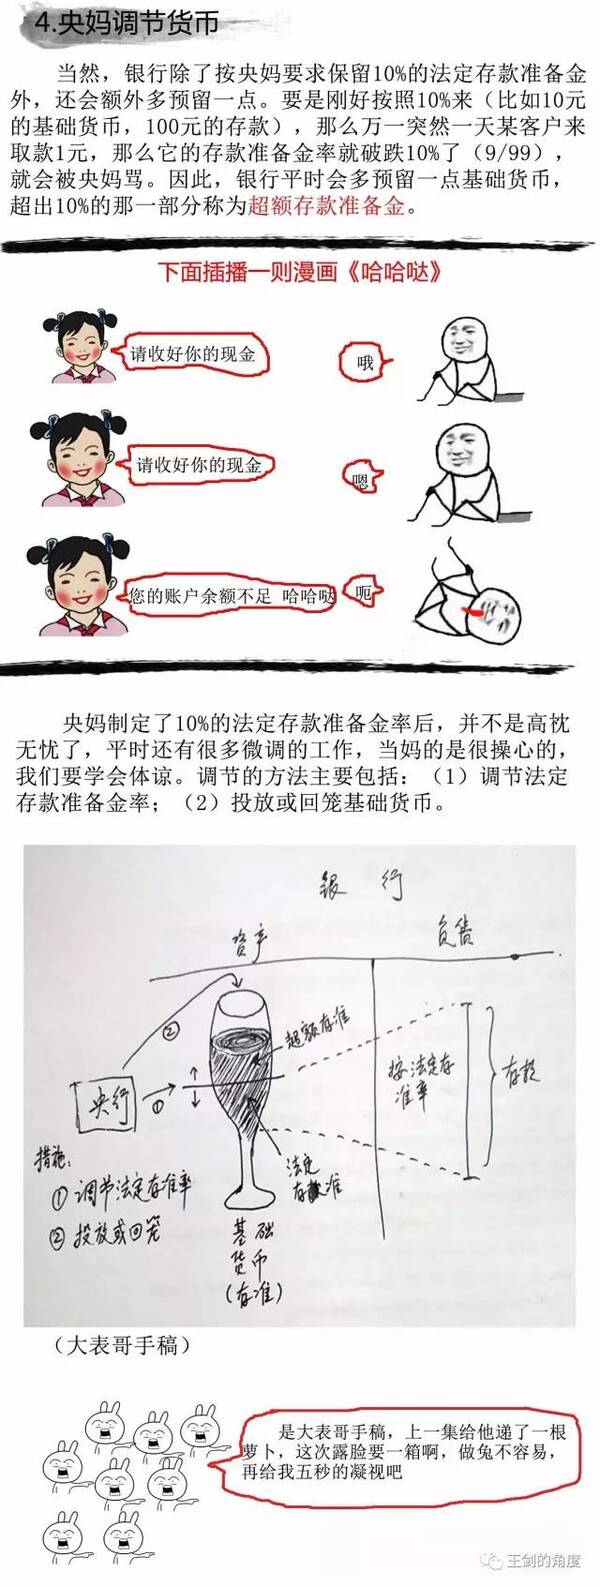 4.央妈调节货币
当然，银行除了按央妈要求保留10%的法定存款准备金
外，还会额外多预留一点。要是刚好按照10%来（比如10元
的基础货币，100元的存款），那么万一突然一天某客户来
取款1元，那么它的存款准备金率就破跌10%了（9/99），
就会被央妈骂。因此，银行平时会多预留一点基础货币，
超出10%的那一部分称为超额存款准备金。
下面插播一则漫画《哈哈哒》
请收好你的现金
哦
请收好你的现金
嗯
您的账户余额不足 哈哈哒
呃
央妈制定了10%的法定存款准备金率后，并不是高枕
无忧了，平时还有很多微调的工作，当妈的是很操心的，
我们要学会体谅。调节的方法主要包括：（1）调节法定
存款准备金率；（2）投放或回笼基础货币。
银 行
资产
负债
②
超额存准
央行
①
按法定存
准率
存款
措施：
① 调节法定存准率
② 投放或回笼
法定
存准
基础
货币
（存准）
（大表哥手稿）
是大表哥手稿，上一集给他递了一根
萝卜，这次露脸要一箱啊，做兔不容易，
再给我五秒的凝视吧
王剑的角度